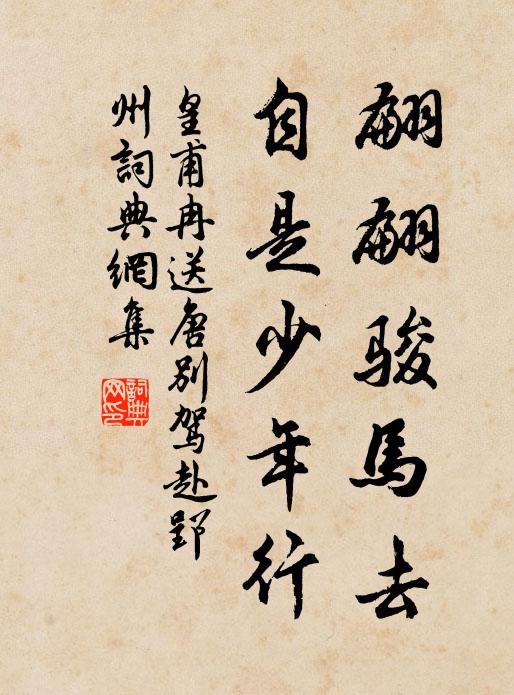 翩翩駿馬去
自是少年行
皇甫冉送唐別駕赴郢
州詞典網集
詞典
网印